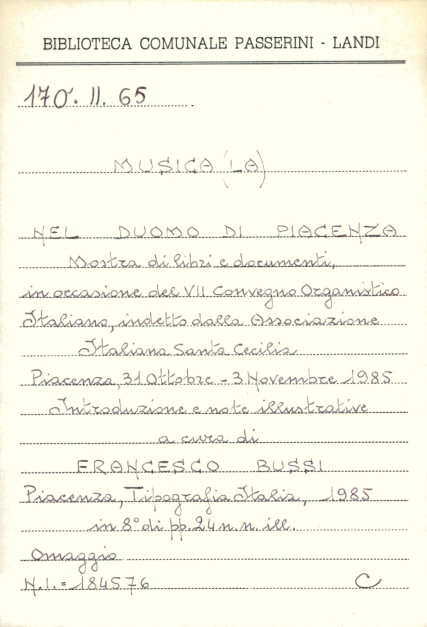 BIBLIOTECA COMUNALE PASSERINI - LANDI
170. II. 65
MUSICA (LA)
NEL DUOMO DI PIACENZA
Mostra di libri e documenti,
in occasione del VII Convegno Organistico
Italiano, indetto dalla Associazione
Italiana Santa Cecilia
Piacenza, 31 Ottobre - 3 Novembre 1985
Introduzione e note illustrative
a cura di
FRANCESCO BUSSI
Piacenza, Tipografia Italia, 1985
in 8° di pp. 24 n. n. ill.
Omaggio
N.I. = 184576 C